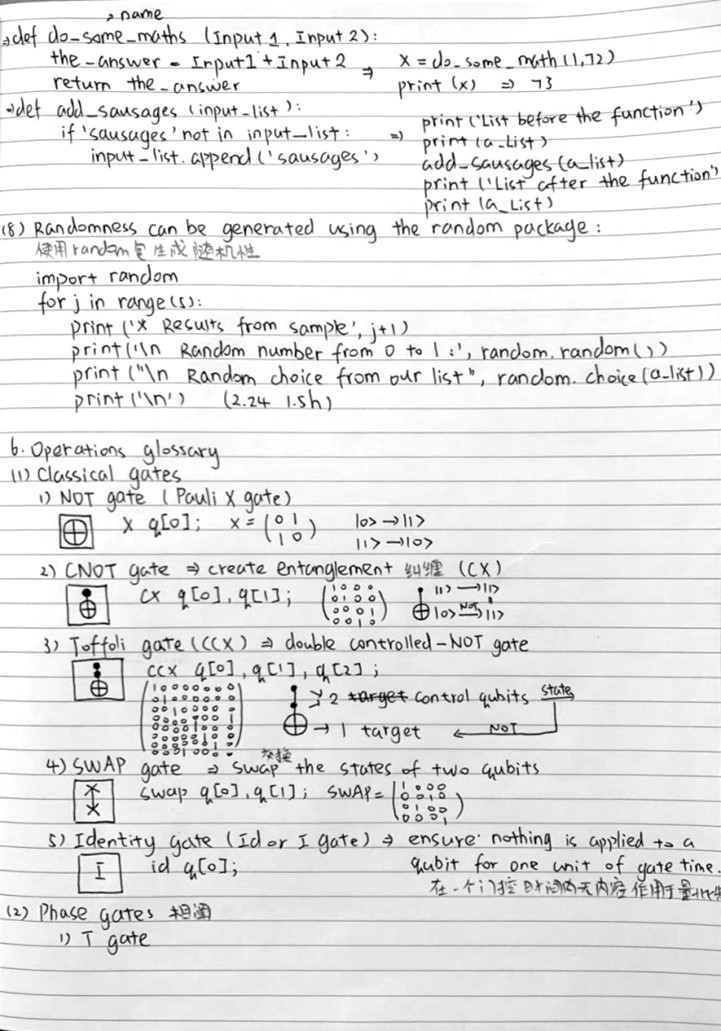 name
def do_some_maths (Input 1, Input 2):
the_answer = Input1 + Input 2 ⇒ x = do_some_math(1,72)
return the_answer print (x) ⇒ 73
⇒def add_sausages (input_list):
if 'sausages' not in input_list: ⇒ print ('List before the function')
input_list.append ('sausages') print (a_List)
add_sausages (a_list)
print ('List after the function')
print (a_List)
(8) Randomness can be generated using the random package:
使用random包生成随机性
import random
for j in range(5):
print ('* Results from sample', j+1)
print('\n Random number from 0 to 1:', random.random())
print ("\n Random choice from our list", random.choice(a_list))
print ('\n') (2.24 1.5h)
6. Operations glossary
(1) Classical gates
1) NOT gate (Pauli X gate)
⊕ X q[0]; X = (0 1 |0> → |1>
1 0) |1> → |0>
2) CNOT gate ⇒ create entanglement 纠缠 (CX)
CX q[0], q[1]; |1> → |1>
⊕ |0> NOT |1>
3) Toffoli gate (CCX) ⇒ double controlled-NOT gate
ccx q[0], q[1], q[2];
2 target control qubits state
⊕ → 1 target ← NOT
交换
4) SWAP gate ⇒ swap the states of two qubits
swap q[0], q[1]; SWAP =
5) Identity gate (Id or I gate) ⇒ ensure nothing is applied to a
I id q[0]; qubit for one unit of gate time.
在一个门控时间内无内容作用于量
(2) Phase gates 相
1) T gate